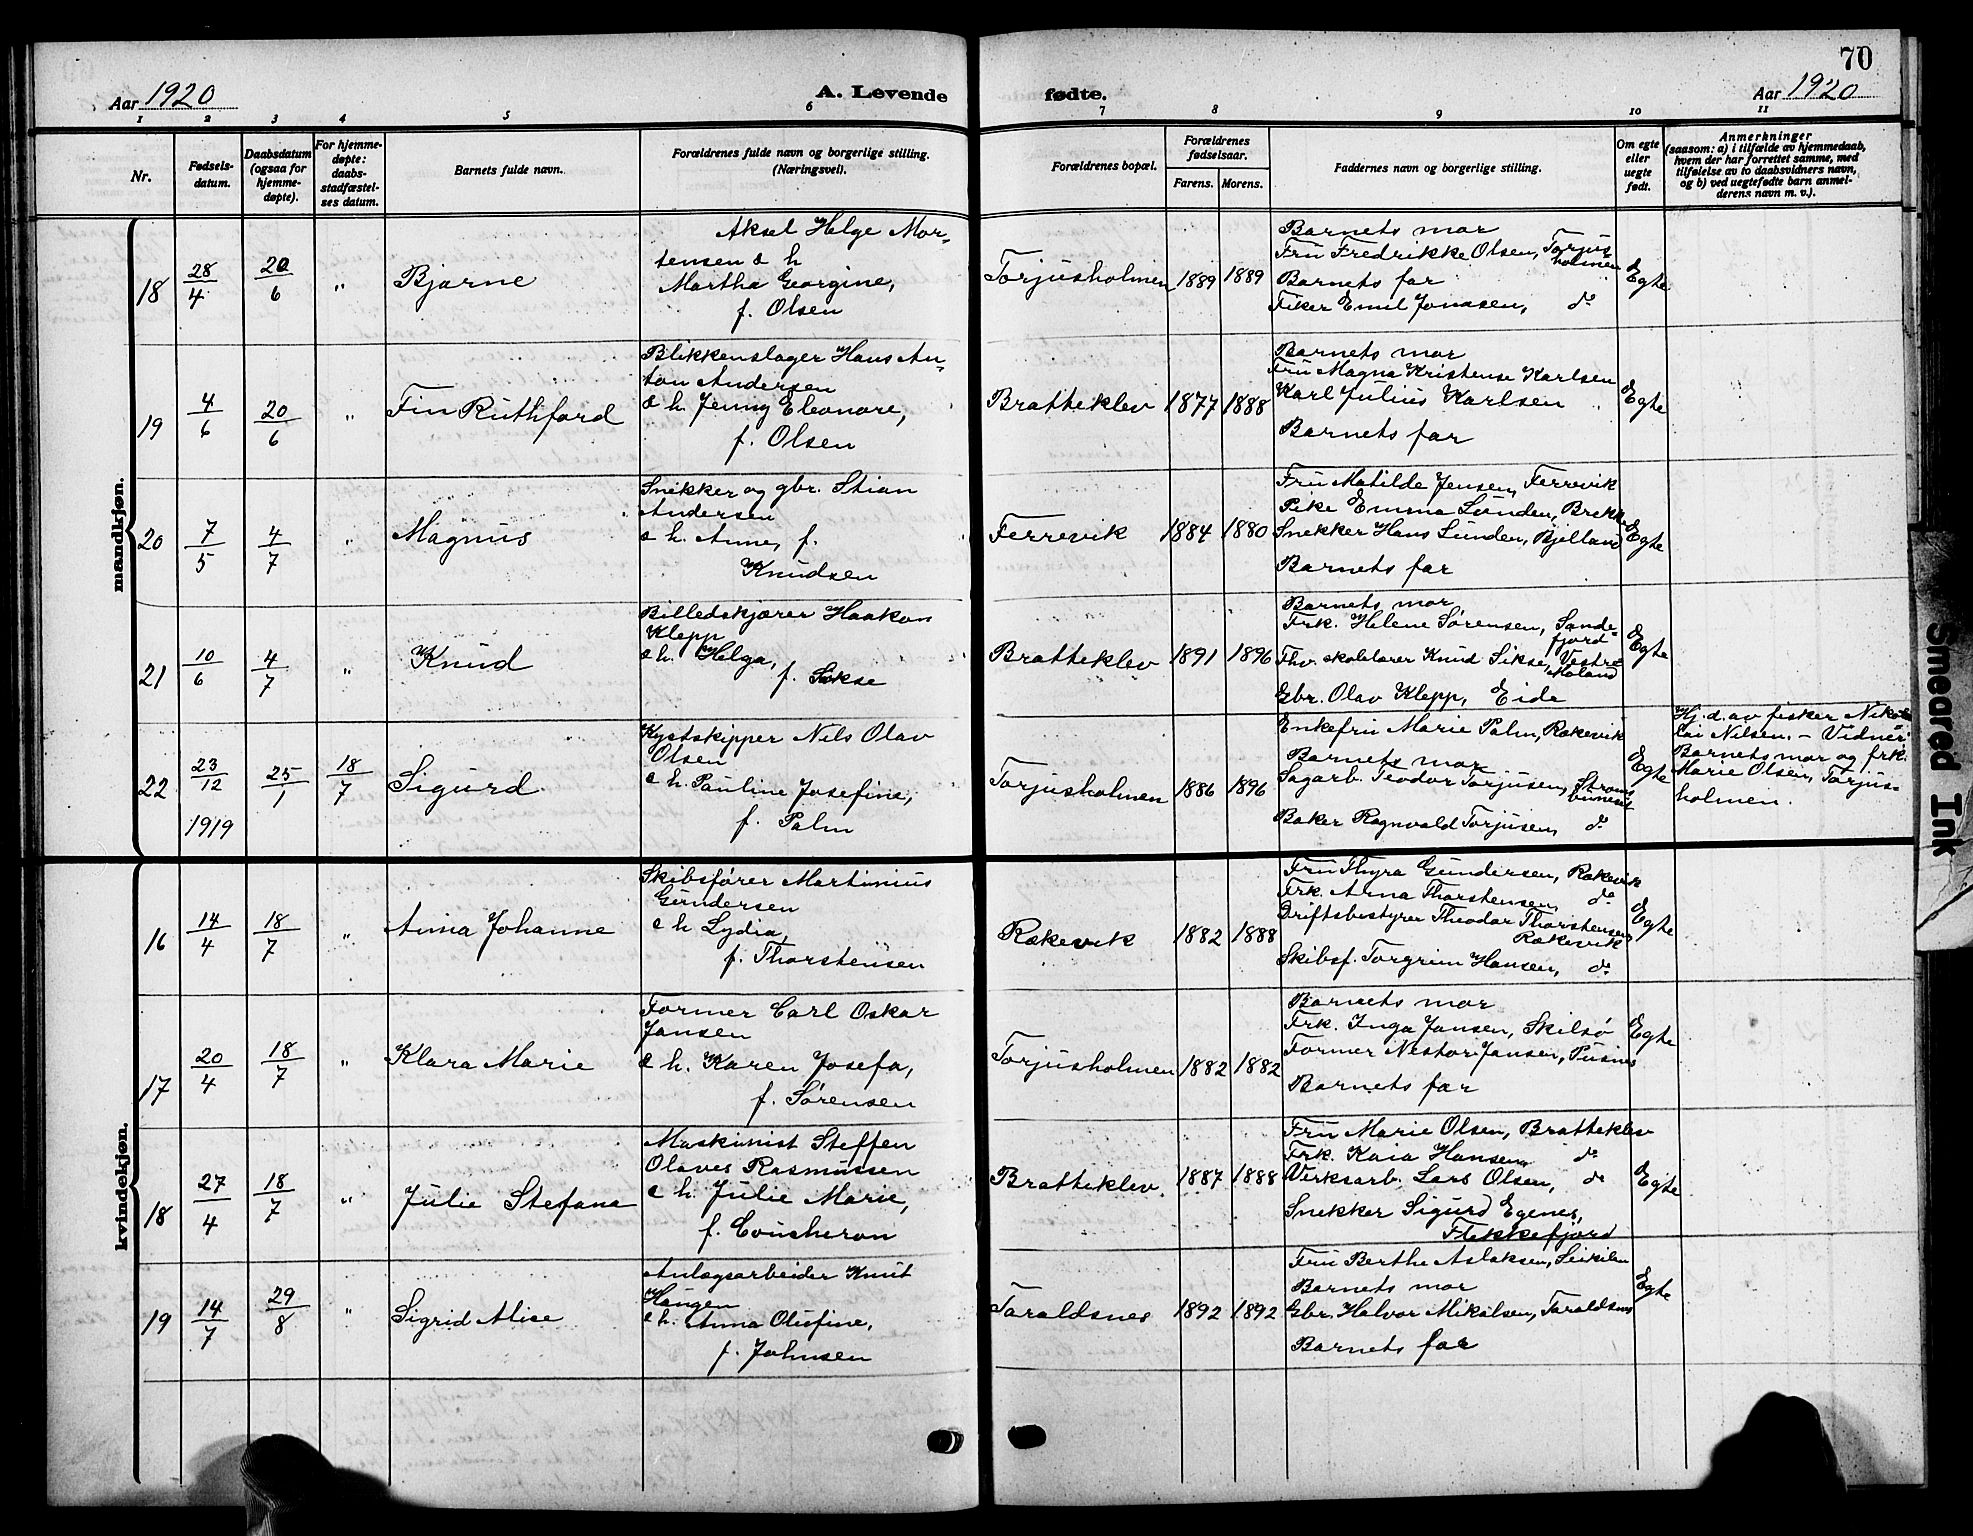 70
Aar 1920
A. Levende
fødte.
Aar 1920
1 2 3 4 5 6 7 8 9 10 11
Nr.
Fødsels-
datum.
Daabsdatum
(ogsaa for
hjemme-
døpte).
For hjemme-
døpte:
daabs-
stadfæstel-
ses datum.
Barnets fulde navn.
Forældrenes fulde navn og borgerlige stilling.
(Næringsvei).
Forældrenes bopæl.
Forældrenes
fødselsaar.
Farens. Morens.
Faddernes navn og borgerlige stilling.
Om egte
eller
uegte
født.
Anmerkninger
(saasom: a) i tilfælde av hjemmedaab,
hvem der har forrettet samme, med
tilføielse av to daabsvidners navn,
og b) ved uegtefødte barn anmel-
derens navn m. v.).
mandkjøn.
18 28/4 20/6 " Bjarne
Aksel Helge Mor-
tensen & h
Martha Georgine,
f. Olsen
Torjusholmen 1889 1889
Barnets mor
Fru Fredrikke Olsen, Torjus
holmen
Barnets far
Fisker Emil Jonassen, do
Egte
19 4/6 20/6 " Fin Ruthford
Blikkenslager Hans An-
ton Andersen
& h. Jenny Eleonore,
f. Olsen
Bratteklev 1877 1888
Barnets mor
Fru Magna Kristense Karlsen
Karl Julius Karlsen
Barnets far
Egte
20 7/5 4/7 " Magnus
Snekker og gbr. Stian
Andersen
& h. Anne, f.
Knudsen
Ferrevik 1884 1880
Fru Matilde Jensen, Ferrevik
Pike Emma Lunden, Brekke
Snekker Hans Lunden, Bjelland
Barnets far
Egte
21 10/6 4/7 " Knud
Billedskjærer Haakon
Klepp
& h. Helga,
f. Sökse
Bratteklev 1891 1896
Barnets mor
Frk. Helene Sørensen, Sande-
fjord
Fhv. skolelærer Knud Sikse, Vestre
Moland
Gbr. Olav Klepp, Eide
Egte
22 23/12 1919 25/1 18/7 Sigurd
Kystskipper Nils Olav
Olsen
& h. Pauline Josefine,
f. Palm
Torjusholmen 1886 1896
Enkefru Marie Palm, Rækevik
Barnets mor
Sagarb. Teodor Torjusen, Stroms
buneset
Baker Ragnvald Torjusen, do
Egte
Hj. d. av fisker Niko-
lai Nilsen. - Vidner:
Barnets mor og frk.
Marie Olsen, Torjus-
holmen.
kvindekjøn.
16 14/4 18/7 " Anna Johanne
Skibsfører Martinius
Gundersen
& h Lydia,
f. Thorstensen
Rækevik 1882 1888
Fru Thyra Gundersen, Rækevik
Frk. Arna Thorstensen, do
Driftsbestyrer Theodor Thorstensen,
Rækevik
Skibsf. Torgrim Hansen, do
Egte
17 20/4 18/7 " Klara Marie
Former Carl Oskar
Jansen
& h. Karen Josefa,
f. Sørensen
Torjusholmen 1882 1882
Barnets mor
Frk. Inga Jansen, Skilsø
Former Nestor Jansen, Pusnes
Barnets far
Egte
18 27/4 18/7 " Julie Stefana
Maskinist Steffen
Olaves Rasmussen
& h. Julie Marie,
f. Coucheron
Bratteklev. 1887 1888
Fru Marie Olsen, Bratteklev
Frk. Kaia Hansen do
Verksarb. Lars Olsen, do
Snekker Sigurd Egenes,
Flekkefjord
Egte
19 14/7 29/8 " Sigrid Alise
Anlægsarbeider Knut
Haugen
& h. Anna Olufine,
f. Johnsen
Taraldsnes 1892 1892
Fru Berthe Aslaksen, Leikilen
Barnets mor
Gbr. Halvor Mikalsen, Taraldsnes
Barnets far
Egte
Smeared Ink